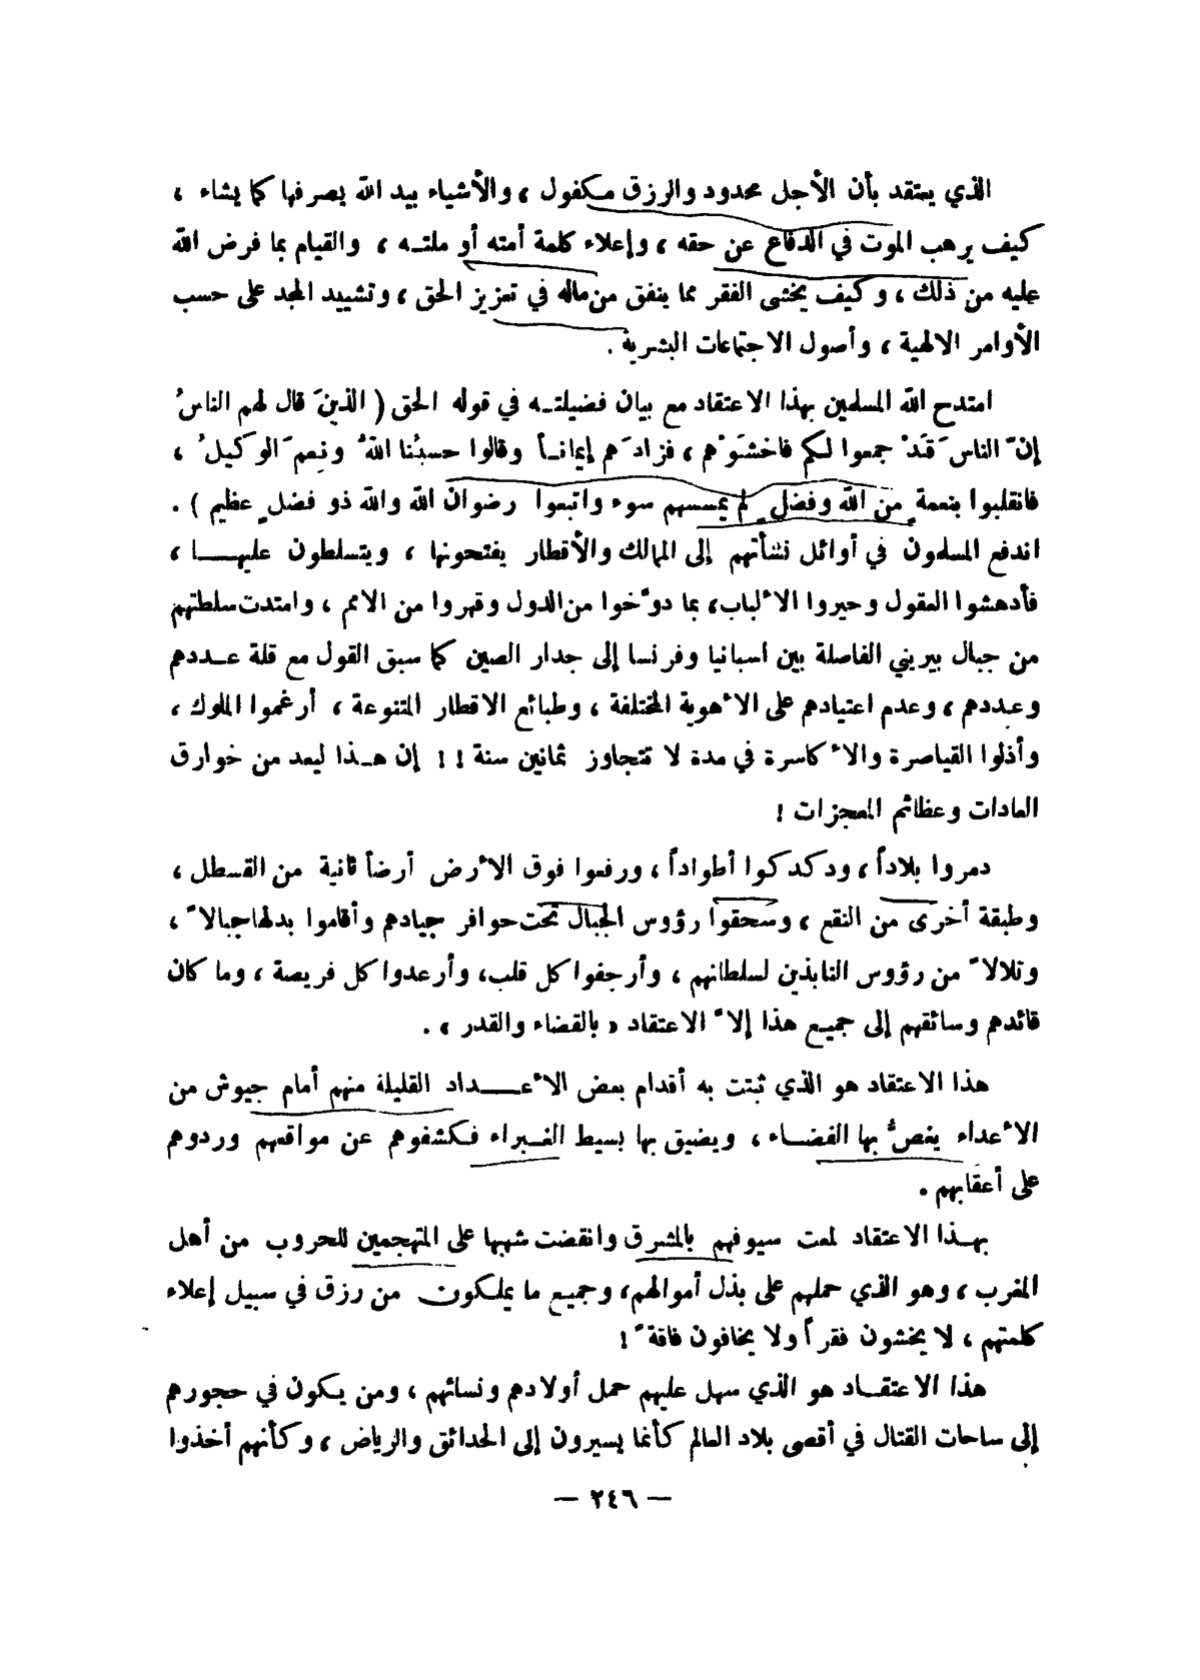 الذي يعتقد بأن الأجل محدود والرزق مكفول ، والأشياء بيد الله يصرفها كما يشاء ،
كيف يرهب الموت في الدفاع عن حقه ، وإعلاء كلمة أمته أو ملتـه ، والقيام بما فرض الله
عليه من ذلك ، وكيف يخشى الفقر مما ينفق من ماله في تعزيز الحق ، وتشييد المجد على حسب
الأوامر الالهية ، وأصول الاجتماعات البشرية .
امتدح الله المسلمين بهذا الاعتقاد مع بيان فضيلتـه في قوله الحق ( الذينَ قال لهم الناسُ
إنّ الناسَ قَدْ جمعوا لكم فاخشَوْهم ، فزادَهم إيمانـاً وقالوا حسبُنا اللهُ ونِعمَ الوكيلُ ،
فانقلبوا بنعمةٍ من الله وفضلٍ لم يمسسهم سوء واتبعوا رضوان الله والله ذو فضلٍ عظيم ) .
اندفع المسلمون في أوائل نشأتهم إلى الممالك والأقطار يفتحونها ، ويتسلطون عليهـــا ،
فأدهشوا العقول وحيروا الألباب، بما دوّخوا من الدول وقهروا من الامم ، وامتدت سلطتهم
من جبال بيريني الفاصلة بين اسبانيا وفرنسا إلى جدار الصين كما سبق القول مع قلة عـددهم
وعددهم ، وعدم اعتيادهم على الأهوية المختلفة ، وطبائع الاقطار المتنوعة ، أرغموا الملوك ،
وأذلوا القياصرة والأكاسرة في مدة لا تتجاوز ثمانين سنة !! إن هـذا ليعد من خوارق
العادات وعظائم المعجزات !
دمروا بلاداً ، ودكدكوا أطواداً ، ورفعوا فوق الأرض أرضاً ثانية من القسطل ،
وطبقة أخرى من النقع ، وسحقوا رؤوس الجبال تحت حوافر جيادهم وأقاموا بدلها جبالاً ،
وتلالاً من رؤوس النابذين لسلطانهم ، وأرجفوا كل قلب، وأرعدوا كل فريصة ، وما كان
قائدهم وسائقهم إلى جميع هذا إلاّ الاعتقاد « بالقضاء والقدر » .
هذا الاعتقاد هو الذي ثبتت به أقدام بعض الأعـــداد القليلة منهم أمام جيوش من
الأعداء يغصُّ بها الفضـاء ، ويضيق بها بسيط الغـبراء فكشفوهم عن مواقعهم وردوهم
على أعقابهم .
بهـذا الاعتقاد لمعت سيوفهم بالمشرق وانقضت شهبها على المتهجمين للحروب من أهل
المغرب ، وهو الذي حملهم على بذل أموالهم، وجميع ما يملكون من رزق في سبيل إعلاء
كلمتهم ، لا يخشون فقراً ولا يخافون فاقةً !
هذا الاعتقـاد هو الذي سهل عليهم حمل أولادهم ونسائهم ، ومن يكون في حجورهم
إلى ساحات القتال في أقصى بلاد العالم كأنما يسيرون إلى الحدائق والرياض ، وكأنهم أخذوا
— ٢٤٦ —